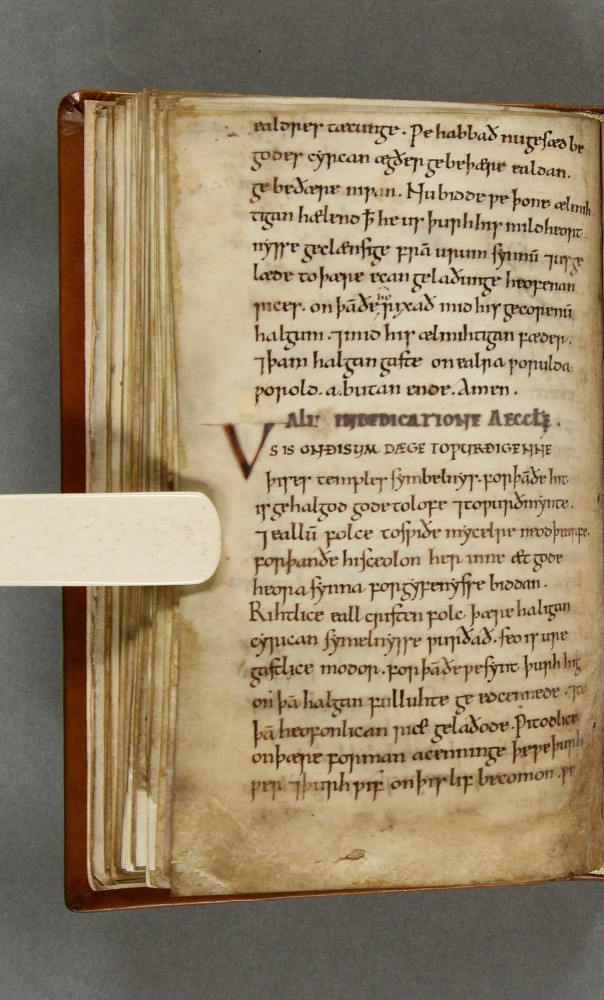 ealdres tæcunge. Ƿe habbað nu gesæd be
godes cyrcan ægðer ge be þære ealdan.
ge be ðære niƿan. Nu bidde ƿe þone ælmih
tigan hælend ꝥ he us þurh his mildheort
nysse geclænsige frā urum synnū ⁊ us ge
læde to þære ecan gelaðunge heofenan
rices. on þā ðe he rixað mid his gecorenū
halgum. ⁊ mid his ælmihtigan fæder.
⁊ þam halgan gaste on ealra ƿorulda
ƿorold. a. butan ende. Amen.
ALIꝰ IN DEDICATIONE AECCLĘ.
VS IS ON ÐISUM DÆGE TO ǷURÐIGENNE
þises temples symbelnys. forþā ðe hit
is gehalgod gode to lofe ⁊ to ƿurðmynte.
⁊ eallū folce to sƿiðe mycelre neodþearfe.
forþan ðe hi sceolon her inne æt gode
heora synna forgyfenysse biddan.
Rihtlice eall cristen folc þære haligan
cyrican symelnysse ƿurðað. seo is ure
gastlice modor. forþā ðe ƿe synt þurh hig
on þā halgan fulluhte ge edcennede. ⁊ to
þā heofonlican rice gelaðode. Ƿitodlice
on þære forman acenninge þe ƿe þurh
ƿer ⁊ þurh ƿif on þis lif becomon. ƿe